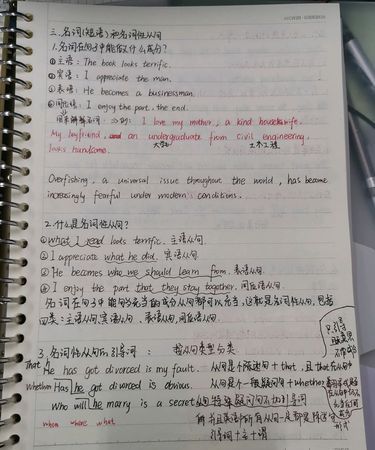 三. 名词(短语)和名词性从句
1. 名词在句子中能做什么成分?
①主语: The book looks terrific.
②宾语: I appreciate the man.
③表语: He becomes a businessman.
④同位语: I enjoy the part, the end.
用来解释名词 I love my mother, a kind housewife.
My boyfriend, an undergraduate from civil engineering,
大学生 土木工程
looks handsome.
Overfishing, a universal issue throughout the world, has become
increasingly fearful under modern conditions.
2. 什么是名词性从句?
①what I read looks terrific. 主语从句.
②I appreciate what he did. 宾语从句.
③He becomes who we should learn from. 表语从句.
④I enjoy the part that they stay together. 同位语从句.
名词在句子中能够充当的成分从句都可以充当, 这就是名词性从句, 包括
四类: 主语从句, 宾语从句, 表语从句, 同位语从句.
3. 名词性从句的引导词: 按从句类型分类
That He has got divorced is my fault. 从句是个陈述句 + that, 且 that 在从句中
whether Has he got divorced is obvious. 从句是个一般疑问句 + whether
Who will he marry is a secret 从句是特殊疑问句不加引导词
when where what 并且英语中所有从句一定都是陈述句
只引导